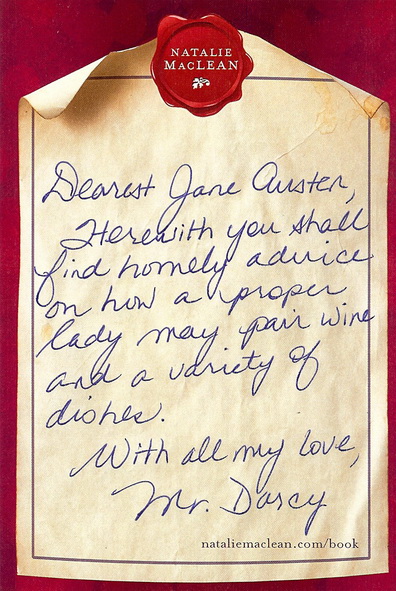 NATALIE
MACLEAN
Dearest Jane Austen,
Herewith you shall
find homely advice
on how a proper
lady may pair wine
and a variety of
dishes.
With all my love,
Mr. Darcy
nataliemaclean.com/book